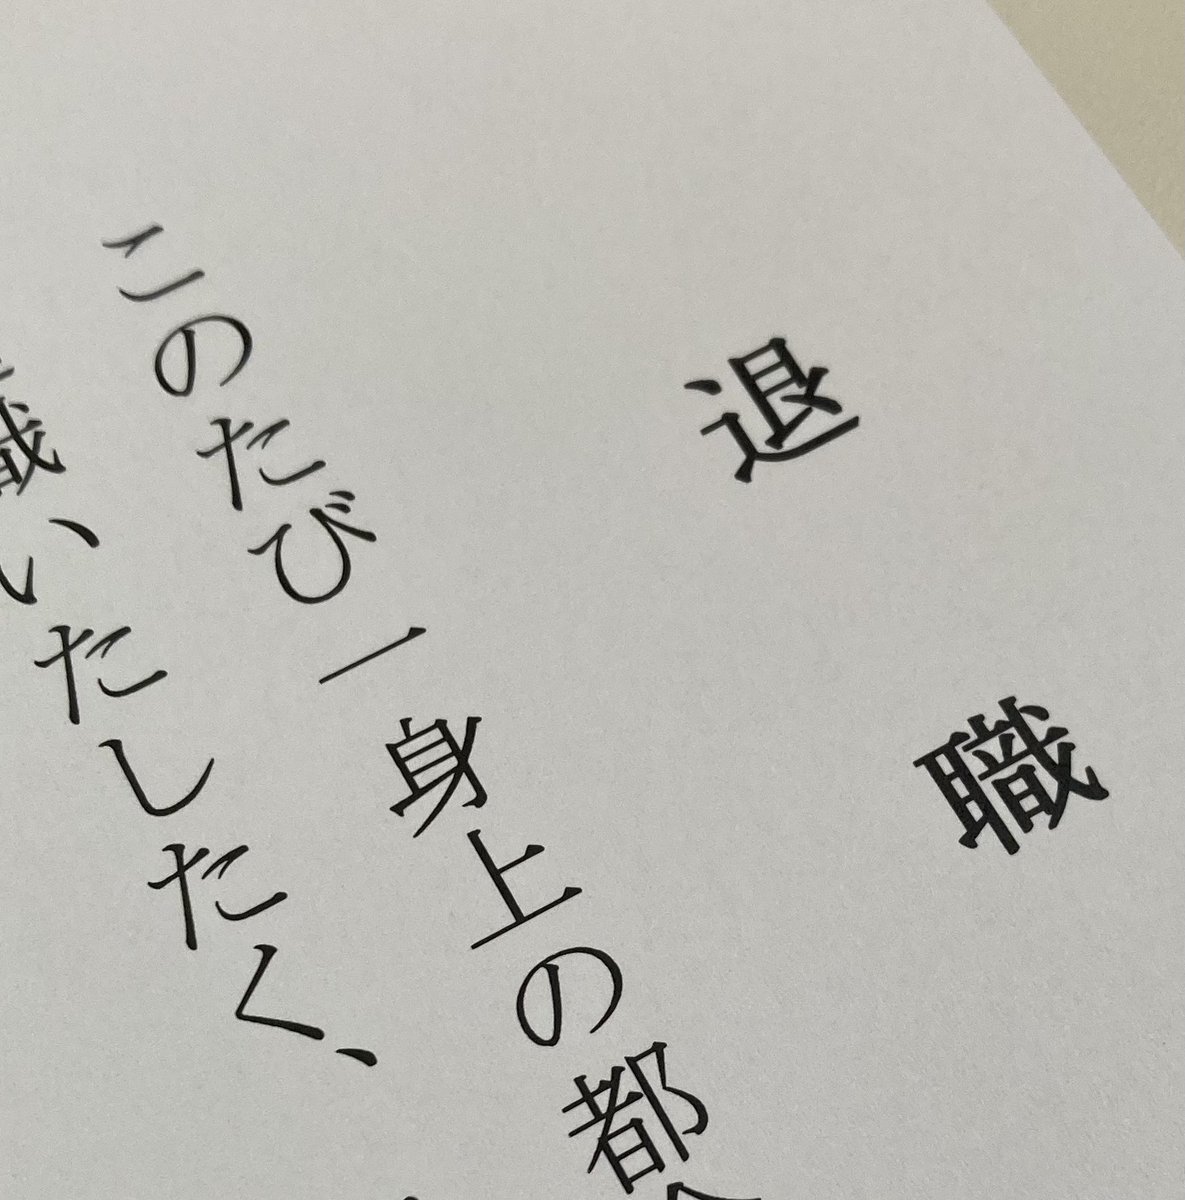 退職
このたび一身上の都
職いたしたく、